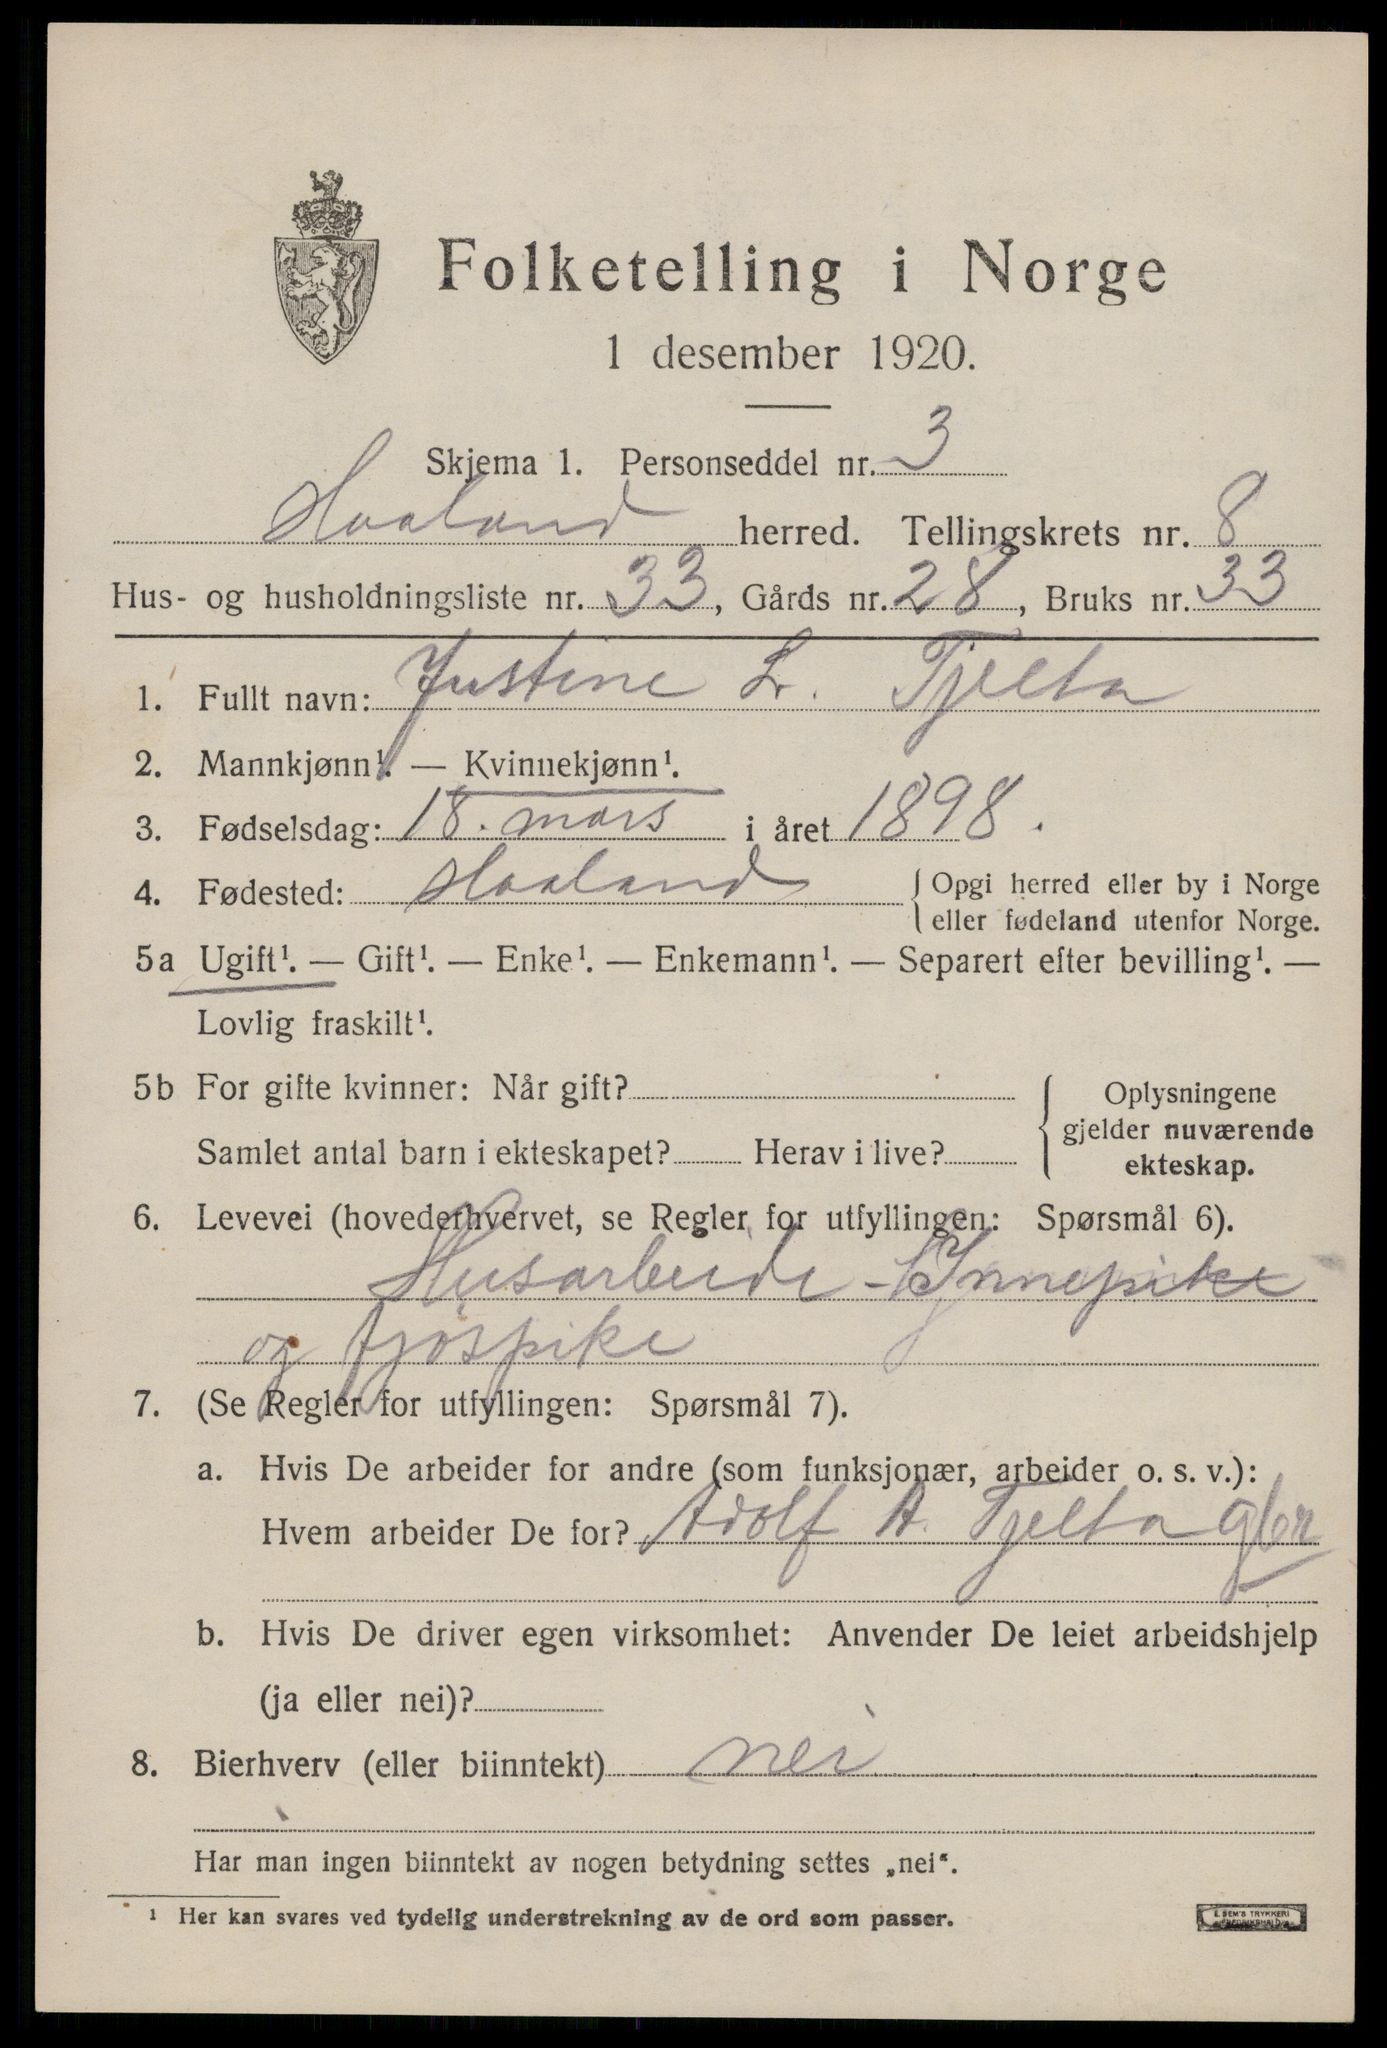 Folketelling i Norge
1 desember 1920.
Skjema 1. Personseddel nr. 3
Haaland herred. Tellingskrets nr. 8
Hus- og husholdningsliste nr. 33, Gårds nr. 28, Bruks nr. 33
1. Fullt navn: Justine L. Tjelta
2. Mannkjønn¹. — Kvinnekjønn¹.
3. Fødselsdag: 18. mars i året 1898.
4. Fødested: Haaland { Opgi herred eller by i Norge
eller fødeland utenfor Norge.
5a Ugift¹. — Gift¹. — Enke¹. — Enkemann¹. — Separert efter bevilling¹. —
Lovlig fraskilt¹.
5b For gifte kvinner: Når gift? { Oplysningene
gjelder nuværende
Samlet antal barn i ekteskapet? Herav i live? ekteskap.
6. Levevei (hovederhvervet, se Regler for utfyllingen: Spørsmål 6).
Husarbeide - Innepike
og fjospike
7. (Se Regler for utfyllingen: Spørsmål 7).
a. Hvis De arbeider for andre (som funksjonær, arbeider o. s. v.):
Hvem arbeider De for? Adolf A. Tjelta gbr
b. Hvis De driver egen virksomhet: Anvender De leiet arbeidshjelp
(ja eller nei)?
8. Bierhverv (eller biinntekt) nei
Har man ingen biinntekt av nogen betydning settes „nei“.
¹ Her kan svares ved tydelig understrekning av de ord som passer.
E. SEM'S TRYKKERI
FREDRIKSHALD